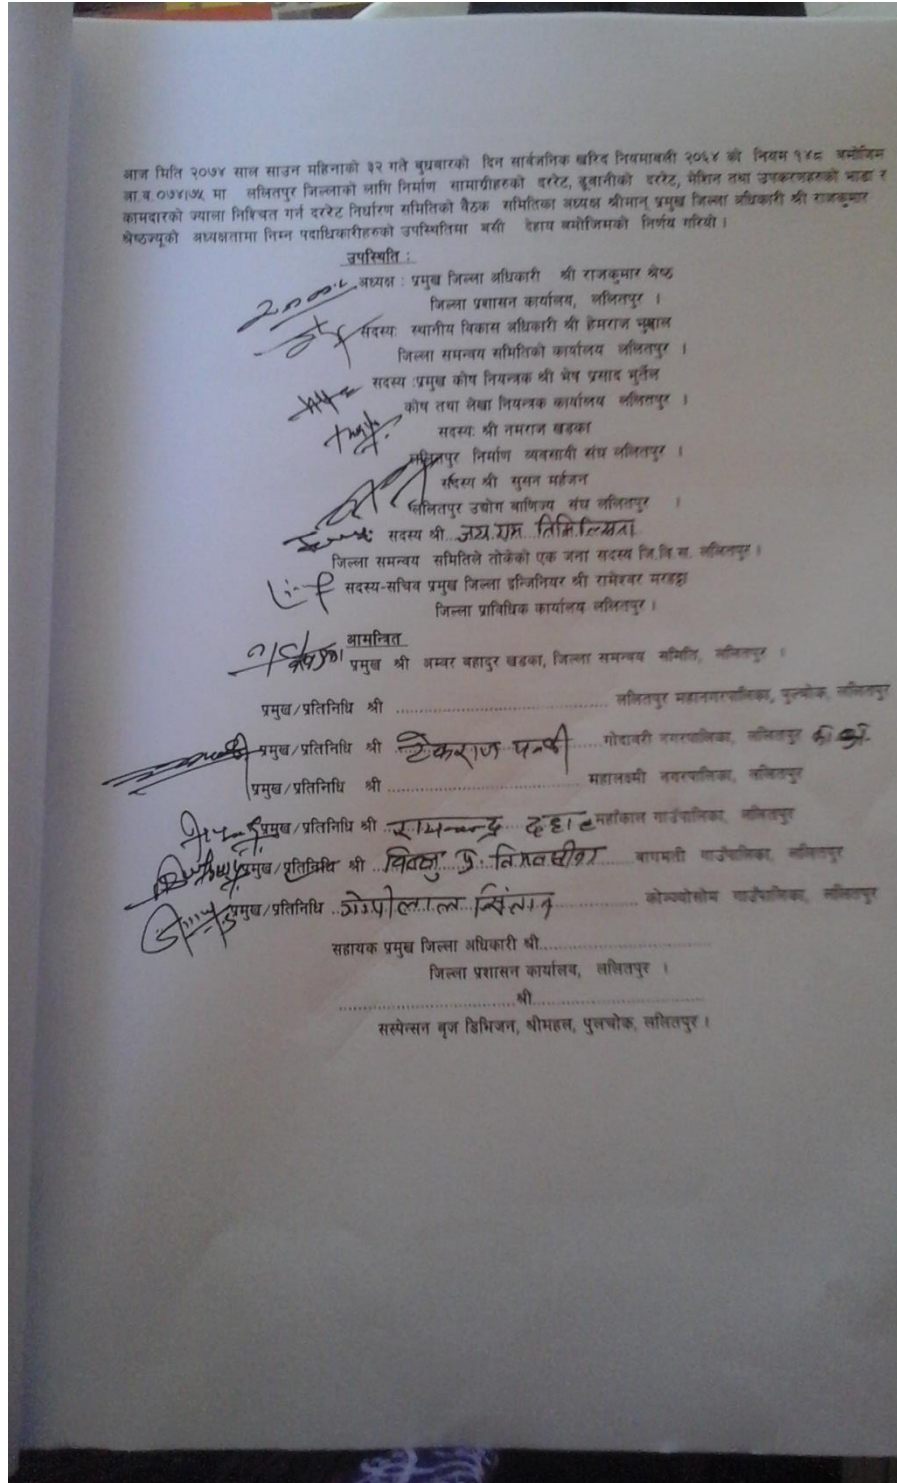 आज मिति २०७४ साल साउन महिनाको ३२ गते बुधबारको दिन सार्वजनिक खरिद नियमावली २०६४ को नियम १४८ बमोजिम
आ.ब.०७४।७५ मा ललितपुर जिल्लाको लागि निर्माण सामाग्रीहरुको दररेट, ढूवानीको दररेट, मेशिन तथा उपकरणहरुको भाडा र
कामदारको ज्याला निश्चित गर्न दररेट निर्धारण समितिको बैठक समितिका अध्यक्ष श्रीमान् प्रमुख जिल्ला अधिकारी श्री राजकुमार
श्रेष्ठज्यूको अध्यक्षतामा निम्न पदाधिकारीहरुको उपस्थितिमा बसी देहाय बमोजिमको निर्णय गरियो ।
उपस्थिति :
अध्यक्ष : प्रमुख जिल्ला अधिकारी श्री राजकुमार श्रेष्ठ
जिल्ला प्रशासन कार्यालय, ललितपुर ।
सदस्यः स्थानीय विकास अधिकारी श्री हेमराज भुषाल
जिल्ला समन्वय समितिको कार्यालय ललितपुर ।
सदस्य :प्रमुख कोष नियन्त्रक श्री भेष प्रसाद भुर्तेल
कोष तथा लेखा नियन्त्रक कार्यालय ललितपुर ।
सदस्यः श्री नमराज खडका
ललितपुर निर्माण व्यवसायी संघ ललितपुर ।
सदस्य श्री सुसन महर्जन
ललितपुर उद्योग बाणिज्य संघ ललितपुर ।
सदस्य श्री.. जय राम तिमिल्सिना
जिल्ला समन्वय समितिले तोकेको एक जना सदस्य जि.वि.स. ललितपुर ।
सदस्य-सचिव प्रमुख जिल्ला इन्जिनियर श्री रामेश्वर मरहट्टा
जिल्ला प्राविधिक कार्यालय ललितपुर ।
आमन्त्रित
प्रमुख श्री अम्बर बहादुर खडका, जिल्ला समन्वय समिति, ललितपुर ।
प्रमुख/प्रतिनिधि श्री ........................................ ललितपुर महानगरपालिका, पुल्चोक, ललितपुर
प्रमुख/प्रतिनिधि श्री टेकराज पन्थी गोदावरी नगरपालिका, ललितपुर
प्रमुख/प्रतिनिधि श्री ........................................ महालक्ष्मी नगरपालिका, ललितपुर
प्रमुख/प्रतिनिधि श्री रामचन्द्र दहाल महाँकाल गाउँपालिका, ललितपुर
प्रमुख/प्रतिनिधि श्री प्र. बागमती गाउँपालिका, ललितपुर
प्रमुख/प्रतिनिधि कोञ्ज्योसोम गाउँपालिका, ललितपुर
सहायक प्रमुख जिल्ला अधिकारी श्री........................................
जिल्ला प्रशासन कार्यालय, ललितपुर ।
........................................श्री........................................
सस्पेन्सन बृज डिभिजन, श्रीमहल, पुलचोक, ललितपुर ।